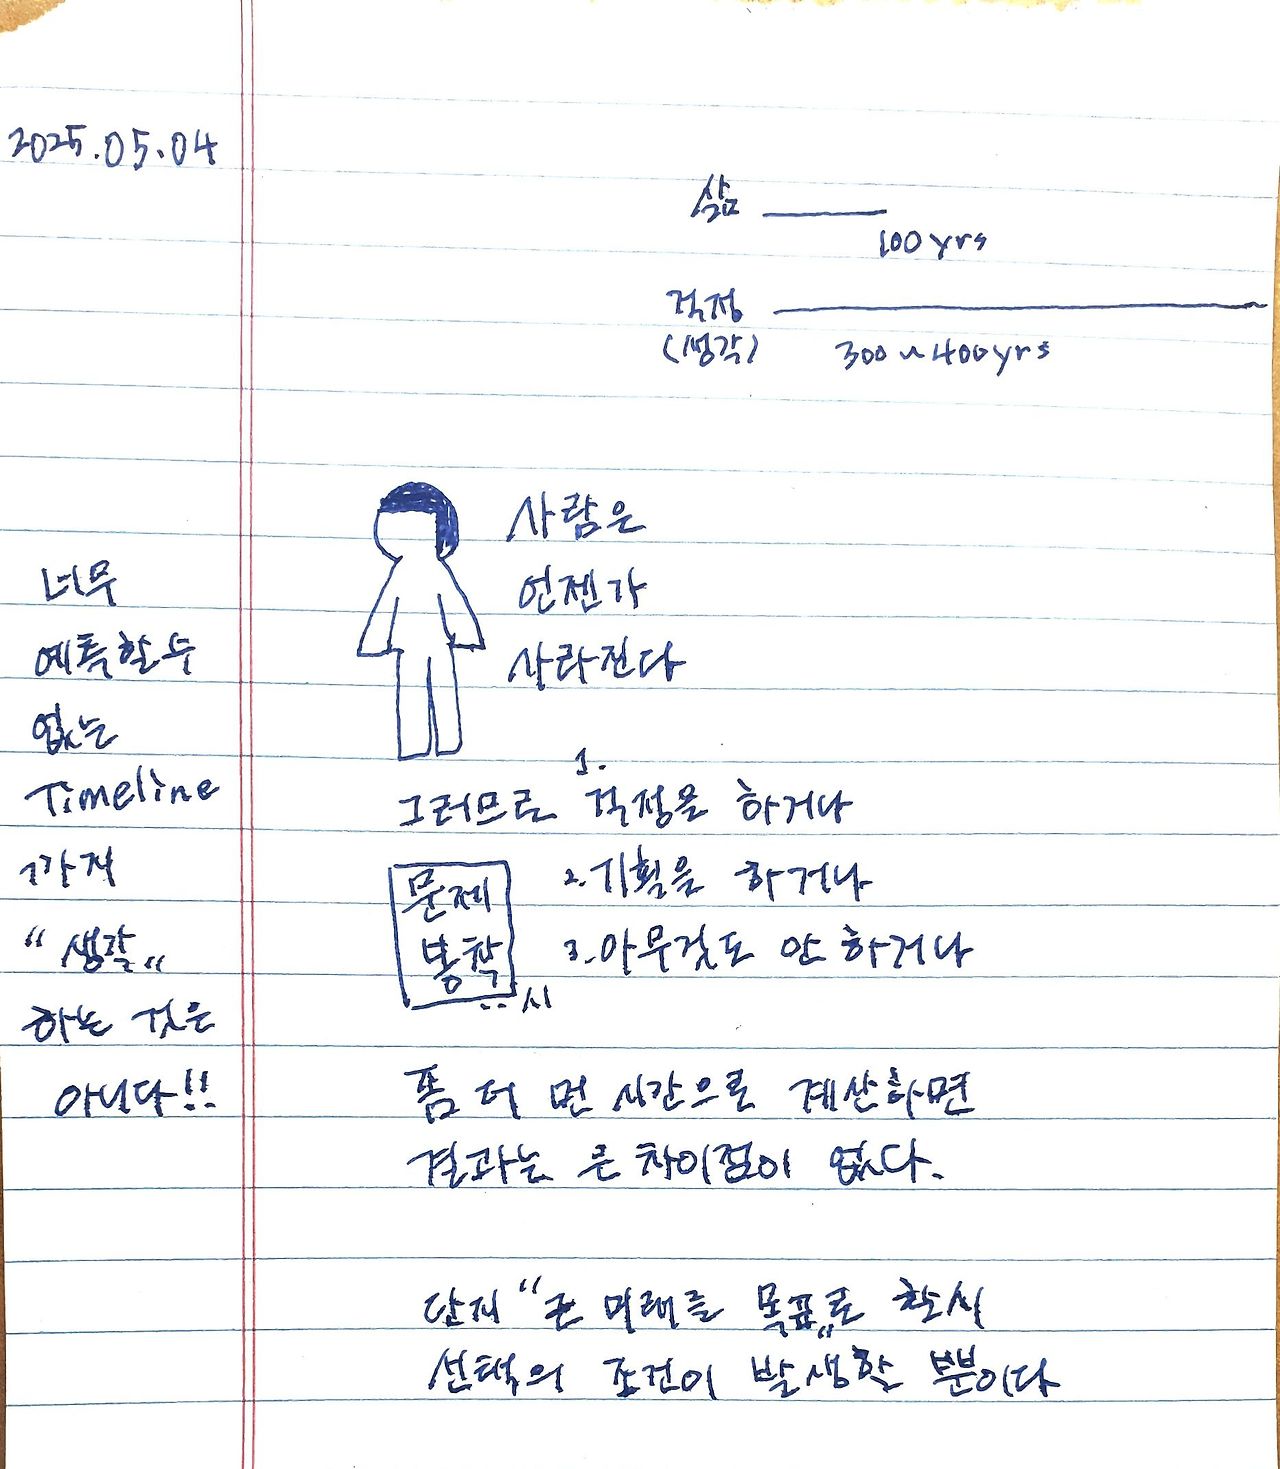 2025.05.04
삶
100 yrs
걱정
(생각)
300~400yrs
사람은
언젠가
사라진다
너무
예측할 수
없는
Timeline
까지
"생각"
하는 것은
아니다!!
1.
그러므로 걱정을 하거나
2. 기획을 하거나
3. 아무것도 안 하거나
문제
봉착
시
좀 더 먼 시간으로 계산하면
결과는 큰 차이점이 없다.
단지 "근 미래를 목표"로 할시
선택의 조건이 발생할 뿐이다